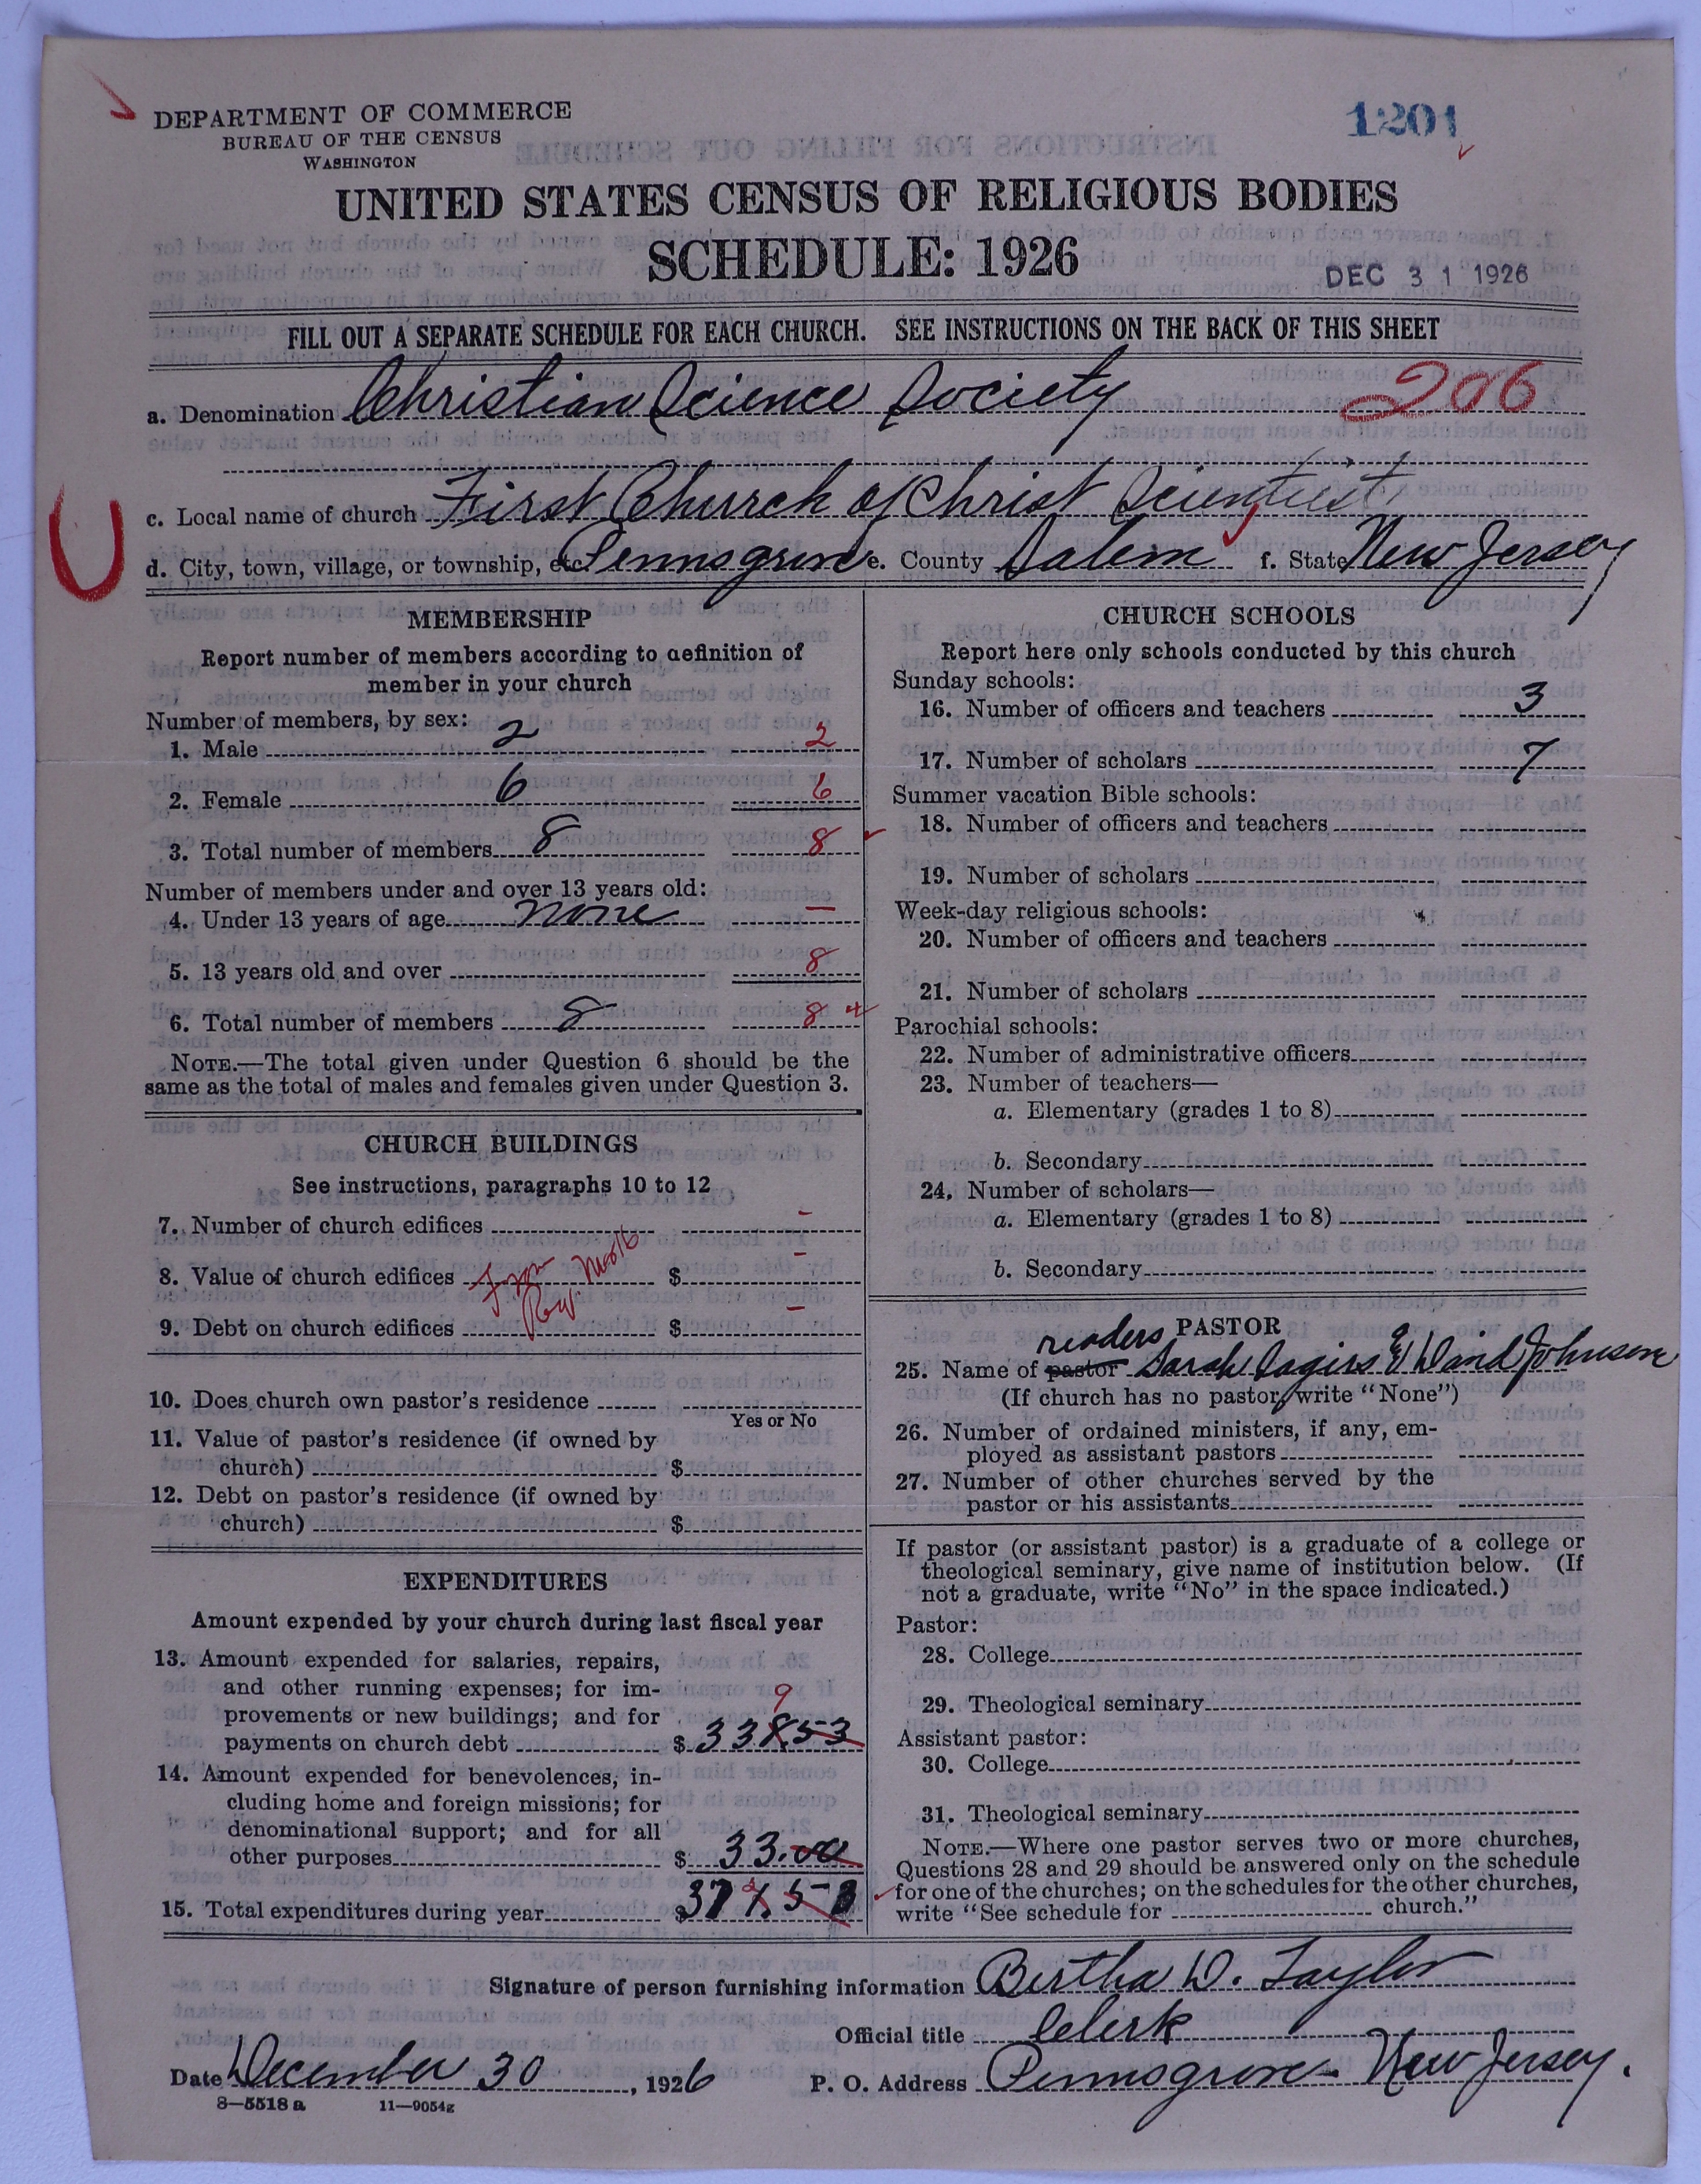 DEPARTMENT OF COMMERCE
BUREAU OF THE CENSUS
WASHINGTON
1201
UNITED STATES CENSUS OF RELIGIOUS BODIES
SCHEDULE: 1926
DEC 31 1926
FILL OUT A SEPARATE SCHEDULE FOR EACH CHURCH. SEE INSTRUCTIONS ON THE BACK OF THIS SHEET
a. Denomination Christian Science Society 206
c. Local name of church First Church of Christ Scientist
d. City, town, village, or township, etc. Pennsgrove e. County Salem f. State New Jersey
MEMBERSHIP
Report number of members according to definition of
member in your church
Number of members, by sex:
1. Male 2 2
2. Female 6 6
3. Total number of members 8 8
Number of members under and over 13 years old:
4. Under 13 years of age none —
5. 13 years old and over 8
6. Total number of members 8 8
NOTE.—The total given under Question 6 should be the
same as the total of males and females given under Question 3.
CHURCH BUILDINGS
See instructions, paragraphs 10 to 12
7. Number of church edifices -
8. Value of church edifices $ -
9. Debt on church edifices $ -
10. Does church own pastor's residence
Yes or No
11. Value of pastor's residence (if owned by
church) $
12. Debt on pastor's residence (if owned by
church) $
EXPENDITURES
Amount expended by your church during last fiscal year
13. Amount expended for salaries, repairs,
and other running expenses; for im-
provements or new buildings; and for
9
payments on church debt $ 338.53
14. Amount expended for benevolences, in-
cluding home and foreign missions; for
denominational support; and for all
other purposes $ 33.00
15. Total expenditures during year $
CHURCH SCHOOLS
Report here only schools conducted by this church
Sunday schools:
16. Number of officers and teachers 3
17. Number of scholars 7
Summer vacation Bible schools:
18. Number of officers and teachers
19. Number of scholars
Week-day religious schools:
20. Number of officers and teachers
21. Number of scholars
Parochial schools:
22. Number of administrative officers
23. Number of teachers—
a. Elementary (grades 1 to 8)
b. Secondary
24. Number of scholars—
a. Elementary (grades 1 to 8)
b. Secondary
PASTOR
readers
25. Name of pastor Sarah & David Johnson
(If church has no pastor, write "None")
26. Number of ordained ministers, if any, em-
ployed as assistant pastors
27. Number of other churches served by the
pastor or his assistants
If pastor (or assistant pastor) is a graduate of a college or
theological seminary, give name of institution below. (If
not a graduate, write "No" in the space indicated.)
Pastor:
28. College
29. Theological seminary
Assistant pastor:
30. College
31. Theological seminary
NOTE.—Where one pastor serves two or more churches,
Questions 28 and 29 should be answered only on the schedule
for one of the churches; on the schedules for the other churches,
write "See schedule for church."
Signature of person furnishing information Bertha D. Taylor
Official title Clerk
Date December 30, 1926 P. O. Address Pennsgrove - New Jersey.
8—5518 a 11—9054g